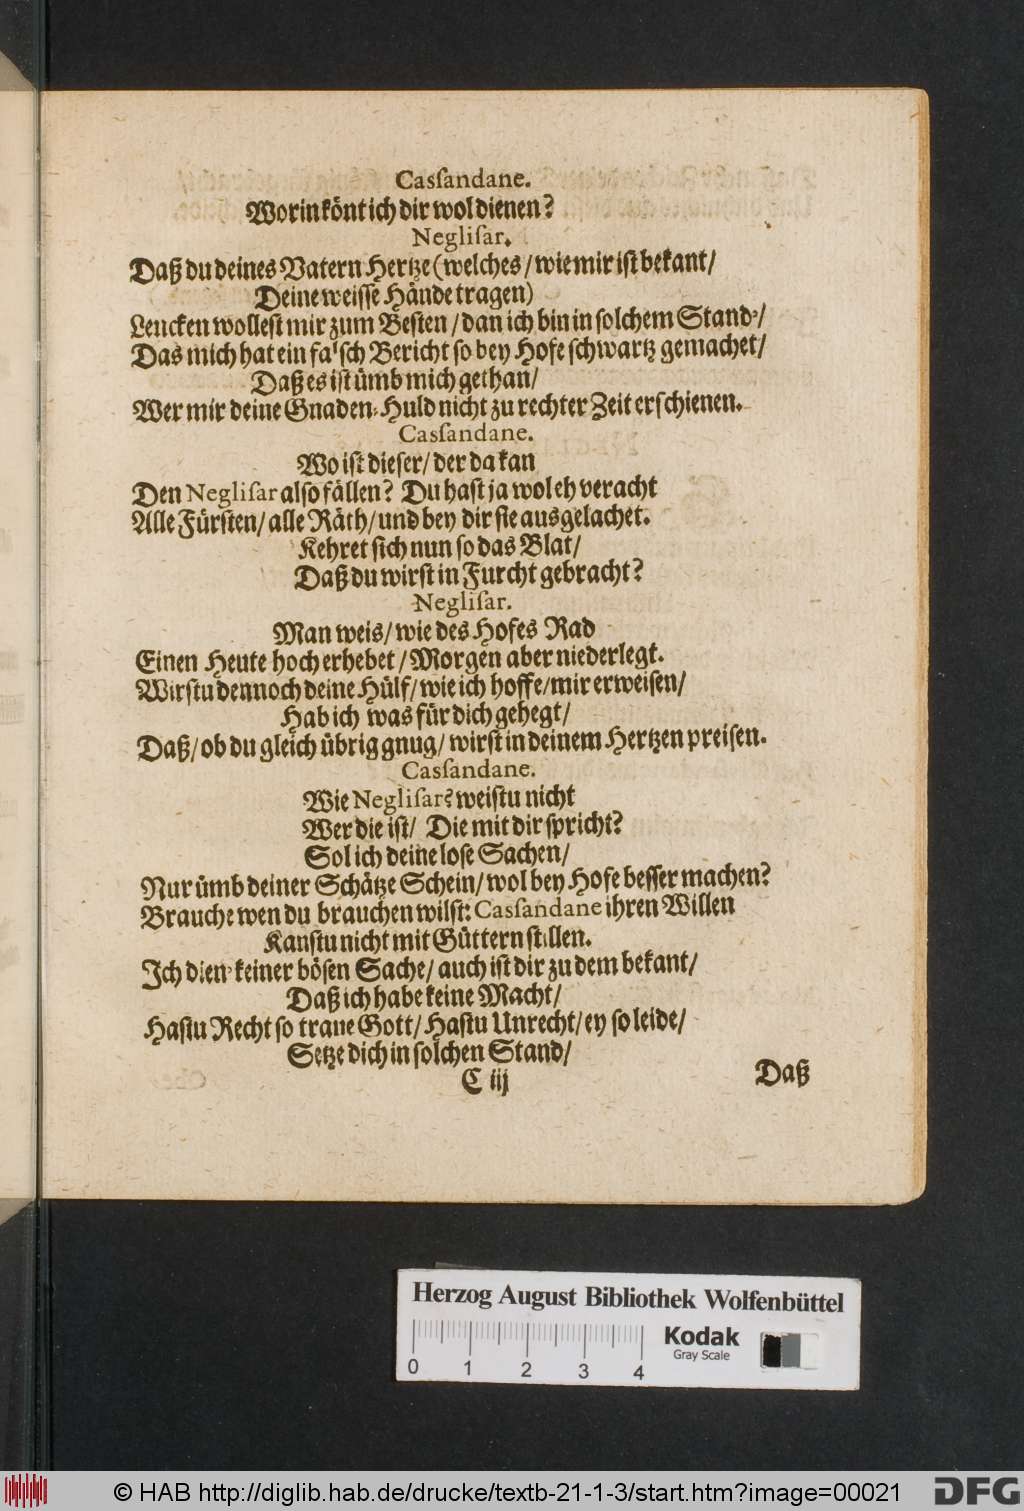 Casſandane.
Worin könt ich dir wol dienen?
Negliſar.
Daß du deines Vatern Hertze (welches / wie mir ist bekant /
Deine weisse Hände tragen)
Lencken wollest mir zum Besten / dan ich bin in solchem Stand- /
Das mich hat ein falsch Bericht so bey Hofe schwartz gemachet /
Daß es ist ümb mich gethan /
Wer mir deine Gnaden-Huld nicht zu rechter Zeit erschienen.
Casſandane.
Wo ist dieser / der da kan
Den Negliſar also fällen? Du hast ja wol eh veracht
Alle Fürsten / alle Räth / und bey dir sie ausgelachet.
Kehret sich nun so das Blat /
Daß du wirst in Furcht gebracht?
Negliſar.
Man weis / wie des Hofes Rad
Einen Heute hoch erhebet / Morgen aber niederlegt.
Wirstu dennoch deine Hülf / wie ich hoffe / mir erweisen /
Hab ich was für dich gehegt /
Daß / ob du gleich übrig gnug / wirst in deinem Hertzen preisen.
Casſandane.
Wie Negliſar? weistu nicht
Wer die ist / Die mit dir spricht?
Sol ich deine lose Sachen /
Nur ümb deiner Schätze Schein / wol bey Hofe besser machen?
Brauche wen du brauchen wilst: Casſandane ihren Willen
Kanstu nicht mit Güttern stillen.
Ich dien' keiner bösen Sache / auch ist dir zu dem bekant /
Daß ich habe keine Macht /
Hastu Recht so traue Gott / Hastu Unrecht / ey so leide /
Setze dich in solchen Stand /
C iij
Daß
Herzog August Bibliothek Wolfenbüttel
0 1 2 3 4
Kodak
Gray Scale
© HAB http://diglib.hab.de/drucke/textb-21-1-3/start.htm?image=00021
DFG